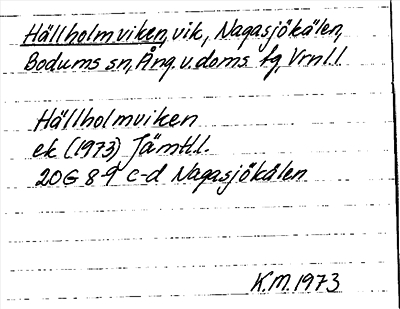 Hällholmviken, vik, Nagasjökälen,
Bodums sn, Ång. v. doms. fg, Vrnl.l.
Hällholmviken
ek (1973) Jämtl.l.
20G 8-9 c-d Nagasjökälen
K.M. 1973